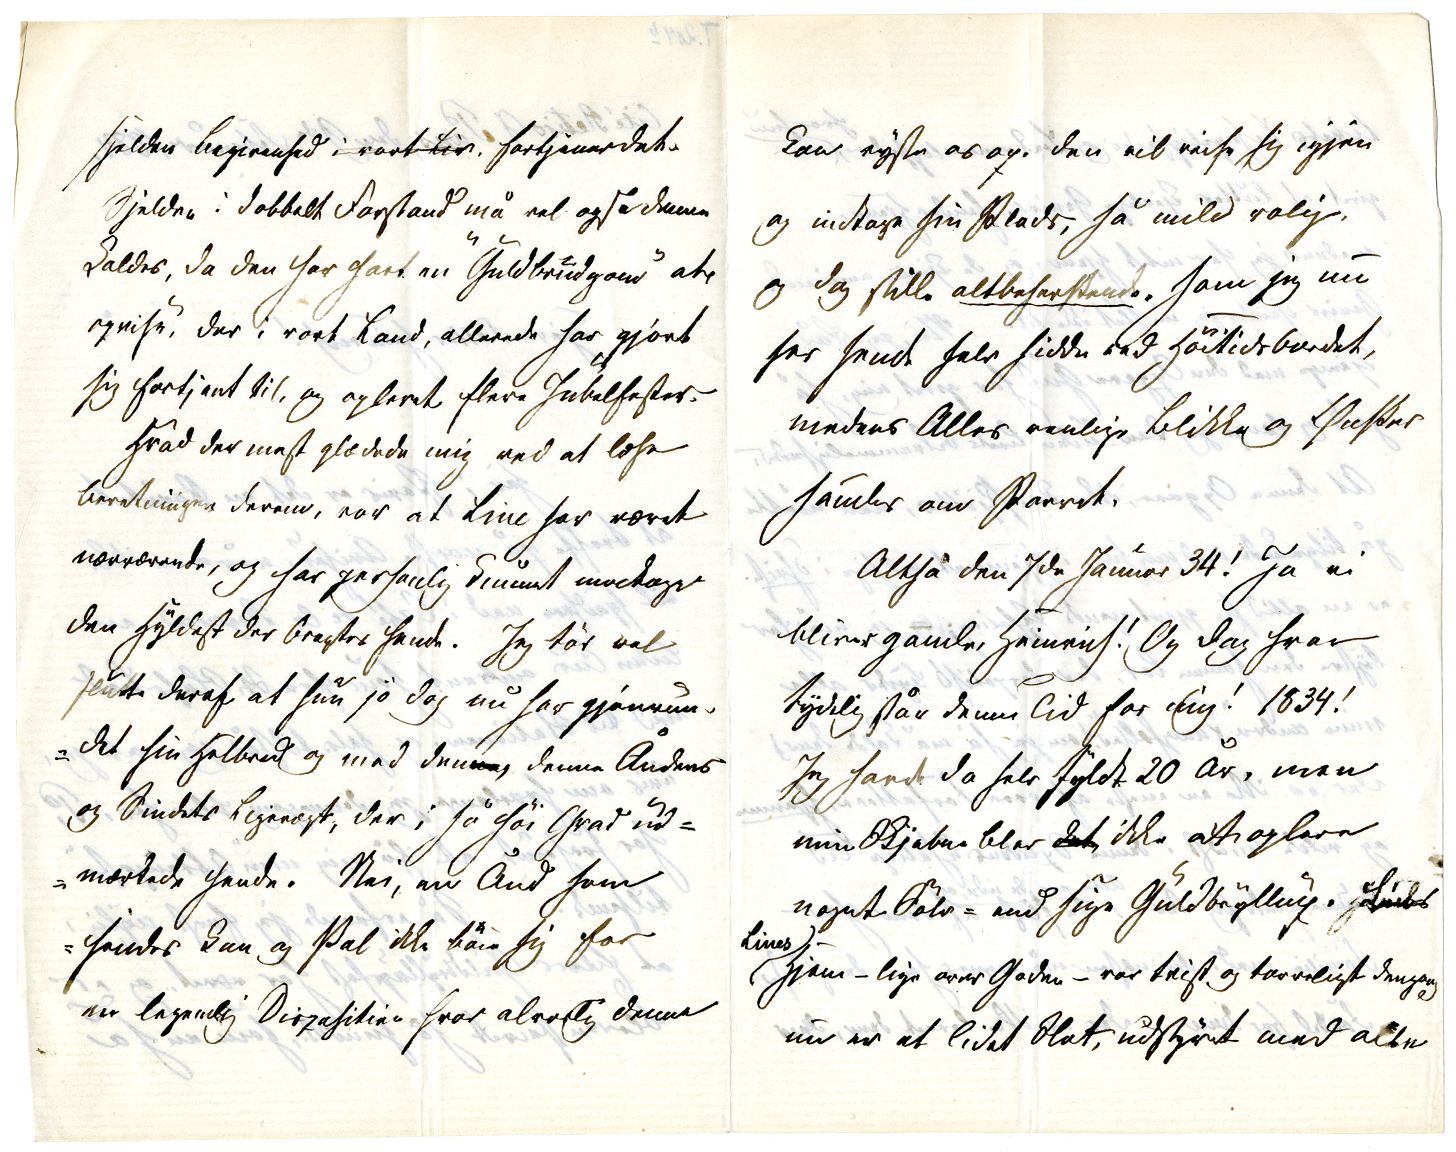 sjelden Begivenhed i vort Liv, fortjener det.
Sjelden i dobbelt Forstand må vel også denne
kaldes, da den har havt en "Guldbrudgom" at
opvise, der i vort Land, allerede har gjort
sig fortjent til, og oplevet flere Jubelfester.
Hvad der mest glædede mig ved at læse
Beretningen derom, var at Line har været
nærværende, og har personlig kunnet modtage
den Hyldest der bragtes hende. Jeg tör vel
slutte deraf at hun jo dog nu har gjenvun-
=det sin Helbred og med denne denne Åndens
og Sindets Ligevægt, der i så höi Grad ud=
=mærkede hende. Nei, en Ånd som
=hendes kan og skal ikke böie sig for
en legemlig Disposition hvor alvorlig denne
kan ryste os op. den vil reise sig igjen
og indtage sin Plads, så mild rolig,
og dog stille altbeherskende, som jeg nu
har hende selv sidde ved Höitidsbordet,
medens Alles venlige Blikke og Ønsker
samles om Parret.
Altså den 7de Januar 34! Ja vi
bliver gamle, Heinrich! Og dog hvor
tydelig står denne Tid for mig! 1834!
Jeg havde da selv fyldt 20 År, men
min Skjebne blev det, ikke at opleve
noget Sölv= end sige Guldbryllup.
Lines
Hjem – lige over Gaden – var trist og tarveligt dengang
nu er et lidet Slot, udstyret med alle